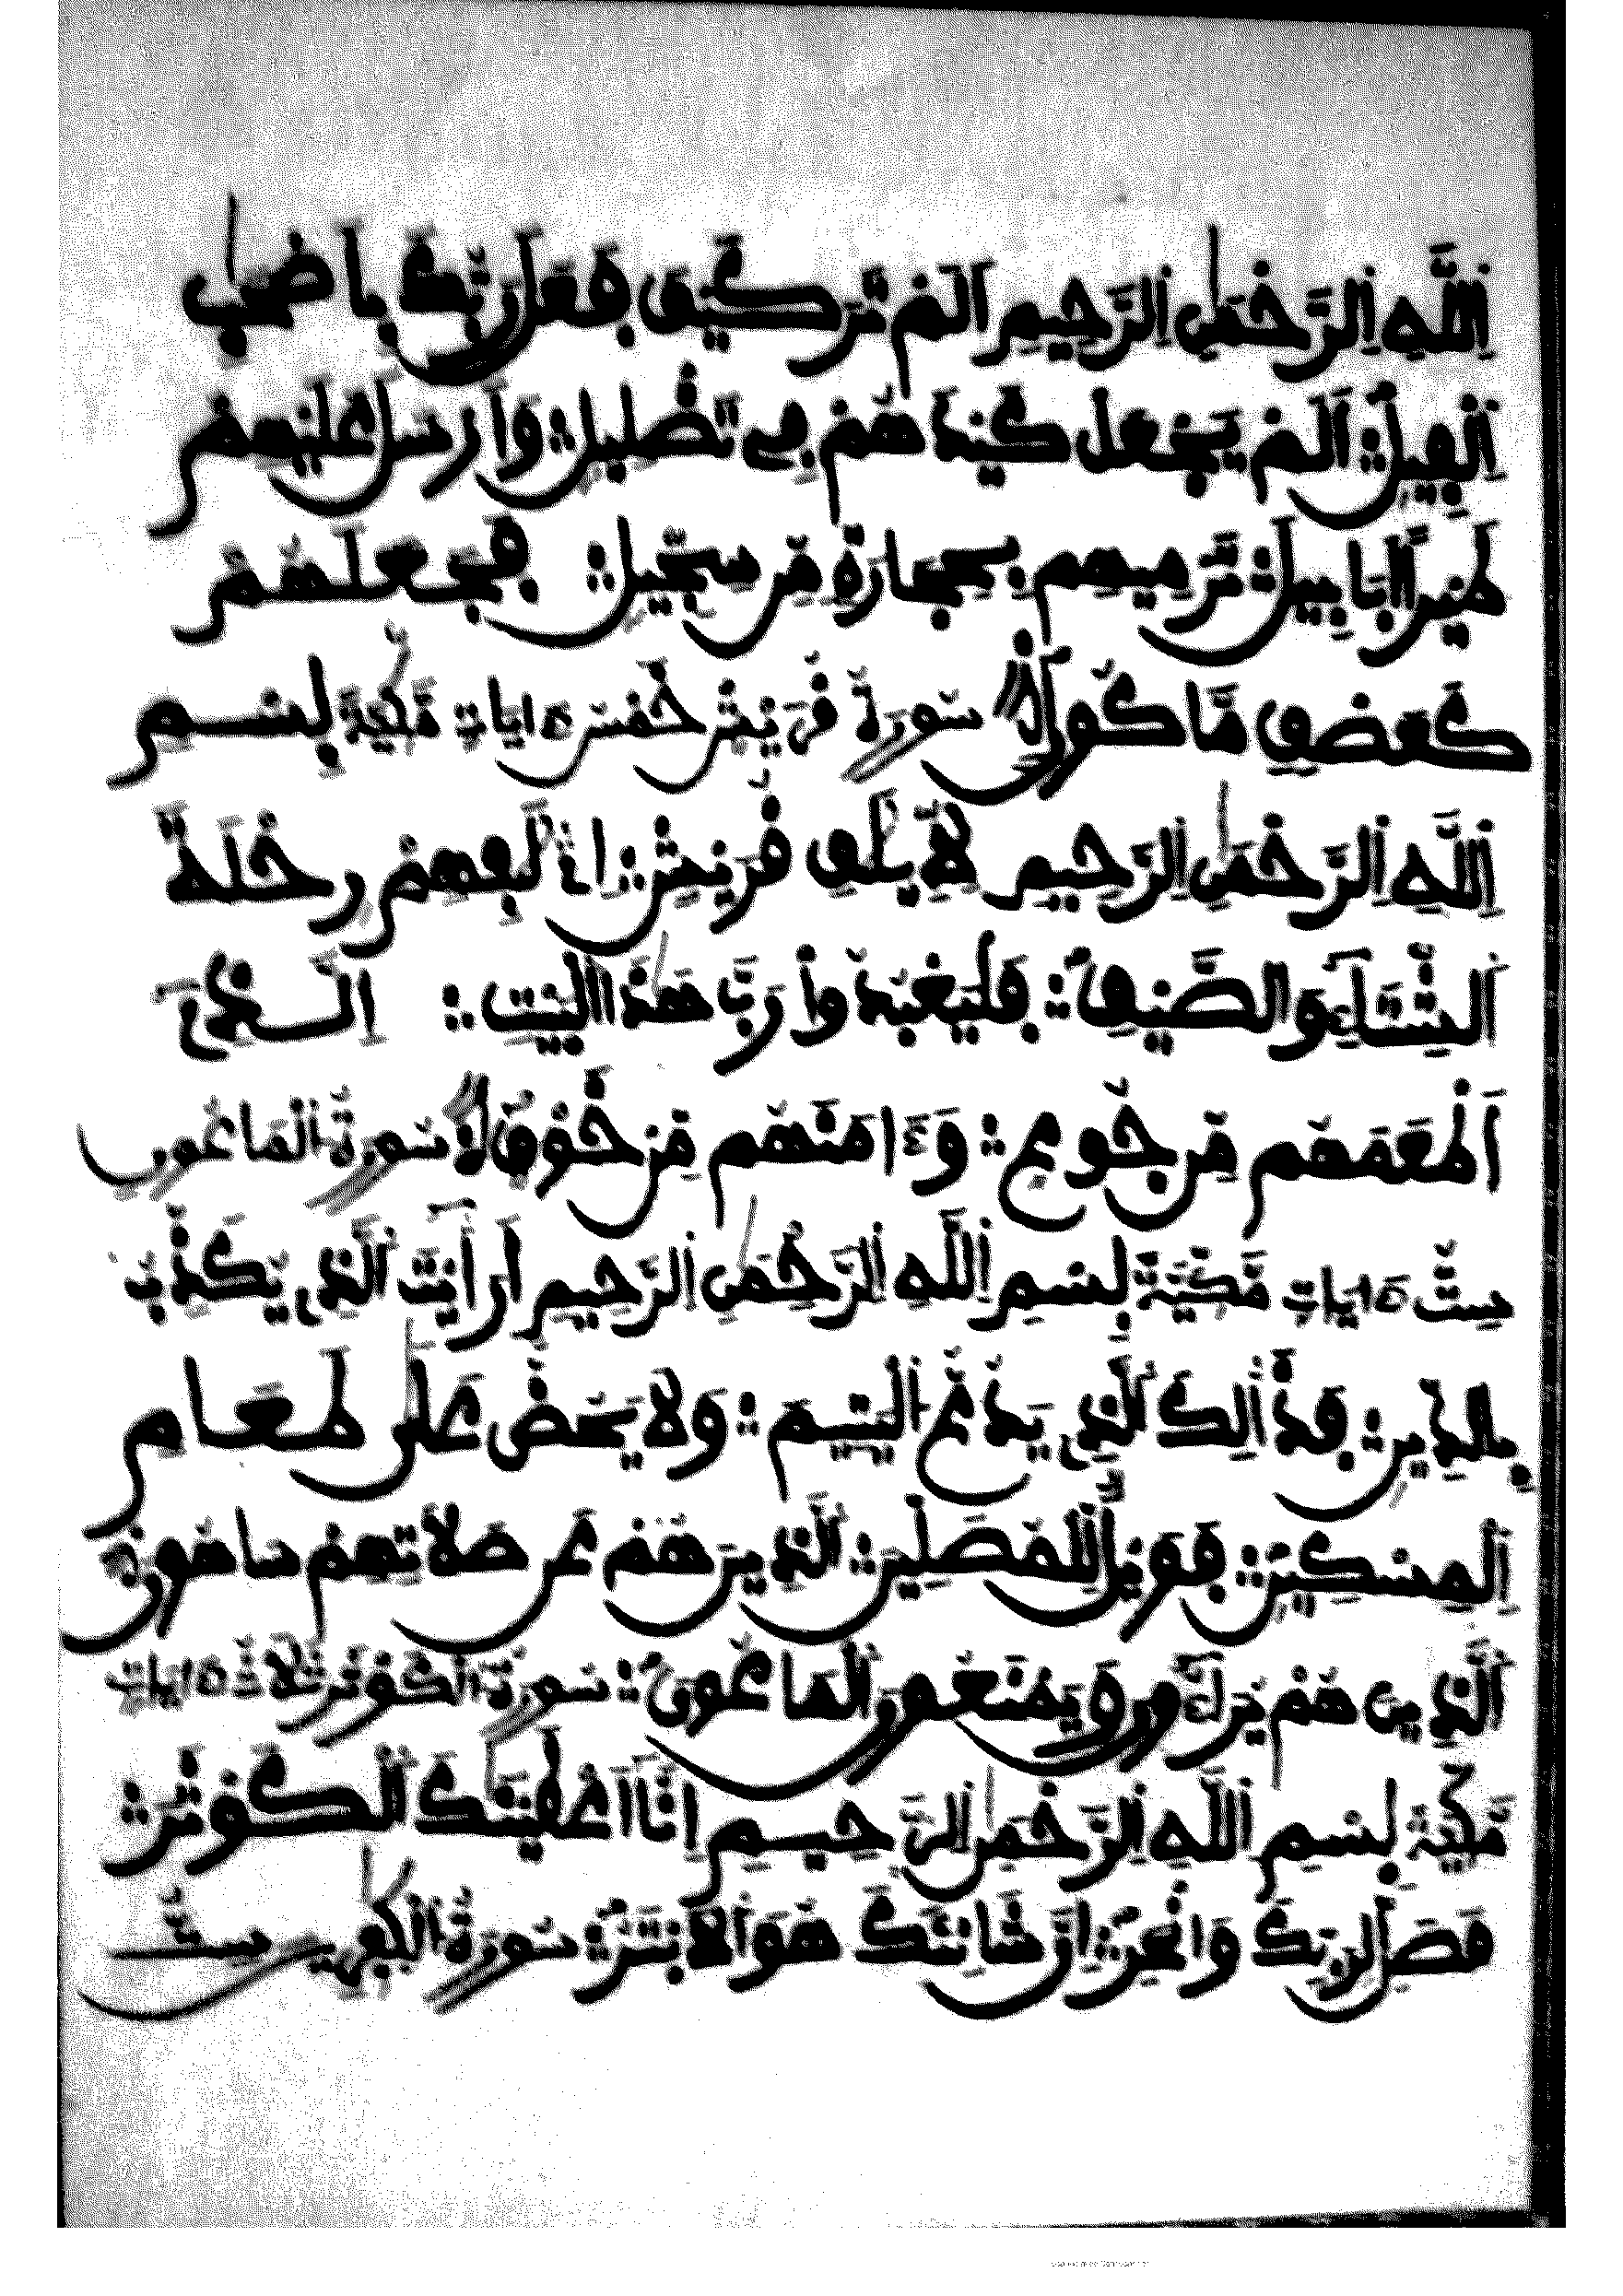 اِللَّهِ اِلرَّحْمَٰنِ اِلرَّحِيمِ أَلَمْ تَرَ كَيْفَ فَعَلَ رَبُّكَ بِأَصْحَٰبِ
اِلْفِيلِ أَلَمْ يَجْعَلْ كَيْدَهُمْ فِي تَضْلِيلٍ وَأَرْسَلَ عَلَيْهِمْ
طَيْراً اَبَابِيلَ تَرْمِيهِم بِحِجَارَةٍ مِّن سِجِّيلٍ فَجَعَلَهُمْ
كَعَصْفٍ مَّأْكُولٍ سورة قريش خمس ءايات مكية بِسْمِ
اِللَّهِ اِلرَّحْمَٰنِ اِلرَّحِيمِ لِإِيلَٰفِ قُرَيْشٍ اِۦلَٰفِهِمْ رِحْلَةَ
اَلشِّتَآءِ وَالصَّيْفِ فَلْيَعْبُدُواْ رَبَّ هَٰذَا اَلْبَيْتِ اِلَّذِےٓ
أَطْعَمَهُم مِّن جُوعٍ وَءَامَنَهُم مِّنْ خَوْفٍ سورة الماعون
ست ءايات مكية بِسْمِ اِللَّهِ اِلرَّحْمَٰنِ اِلرَّحِيمِ أَرَٰيْتَ اَلذِي يُكَذِّبُ
بِالدِّينِ فَذَٰلِكَ اَلذِي يَدُعُّ اَلْيَتِيمَ وَلَا يَحُضُّ عَلَىٰ طَعَامِ
اِلْمِسْكِينِ فَوَيْلٌ لِّلْمُصَلِّينَ اَلذِينَ هُمْ عَن صَلَاتِهِمْ سَاهُونَ
اَلذِينَ هُمْ يُرَآءُونَ وَيَمْنَعُونَ اَلْمَاعُونَ سورة الكوثر ثلاث ءايات
مكية بِسْمِ اِللَّهِ اِلرَّحْمَٰنِ اِلرَّحِيمِ إِنَّآ أَعْطَيْنَٰكَ اَلْكَوْثَرَ
فَصَلِّ لِرَبِّكَ وَانْحَرْ إِنَّ شَانِئَكَ هُوَ اَلْأَبْتَرُ سورة الكٰفرين ست